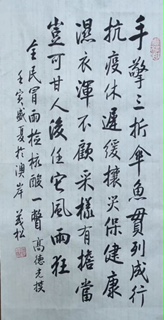 手擎三折傘魚貫列成行
抗疫休遲緩攘災保健康
濕衣渾不顧采樣有擔當
豈可甘人後任它風雨狂
全民冒雨檢核酸一瞥 高德光撰
壬寅盛夏於澳岸